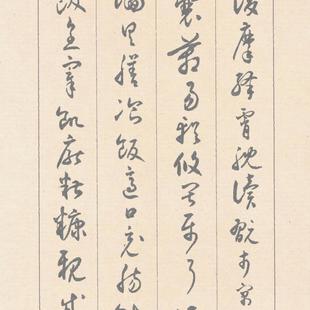 凌摩絳霄耽讀翫市寓
囊箱易輶攸畏屬耳垣
牆具膳飡飯適口充腸飽
飫烹宰飢厭糟糠親戚